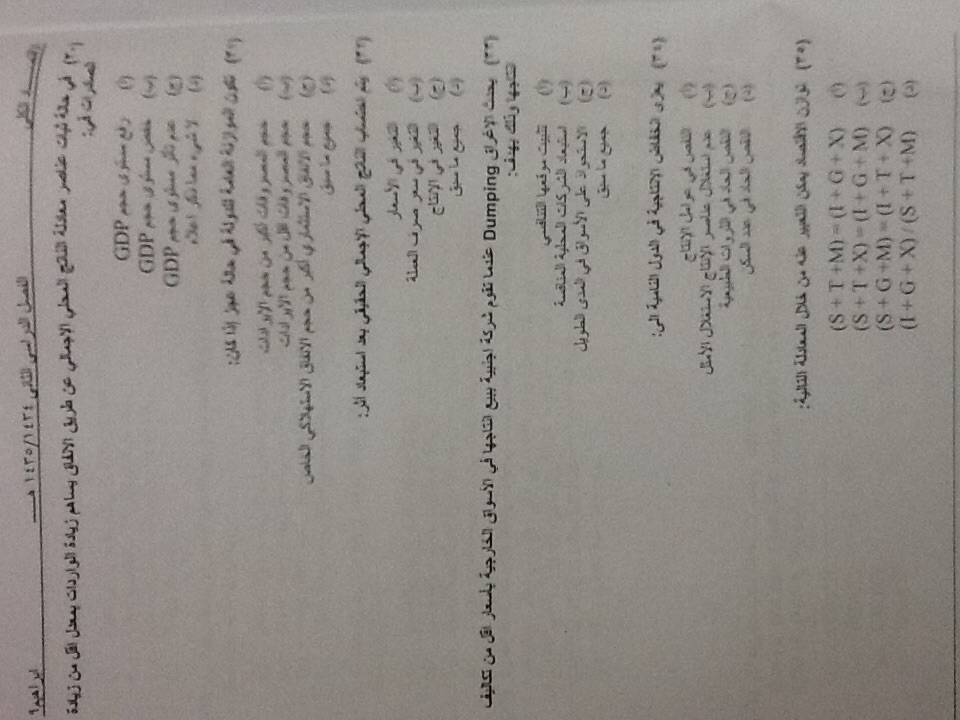 الفصل الدراسي الثاني ١٤٣٤/١٤٣٥ هـ
(٣٠) في حالة ثبات عناصر معادلة الناتج المحلي الإجمالي عن طريق الانفاق يساهم زيادة الواردات بمعدل اقل من زيادة
الصادرات في:
(أ) رفع مستوى حجم GDP
(ب) خفض مستوى حجم GDP
(ج) عدم تأثر مستوى حجم GDP
(د) لا شيء مما ذكر اعلاه
تكون الموازنة العامة للدولة في حالة عجز إذا كان:
(أ) حجم المصروفات أكبر من حجم الإيرادات
(ب) حجم المصروفات أقل من حجم الإيرادات
(ج) حجم الانفاق الاستثماري أكبر من حجم الانفاق الاستهلاكي الخاص
(د) جميع ما سبق
يتم احتساب الناتج المحلي الإجمالي الحقيقي بعد استبعاد أثر:
(أ) التغير في الأسعار
(ب) التغير في سعر صرف العملة
(ج) التغير في الانتاج
(د) جميع ما سبق
(٣٣) يحدث الإغراق Dumping عندما تقوم شركة اجنبية ببيع انتاجها في الأسواق الخارجية بأسعار اقل من تكاليف
انتاجها وذلك بهدف:
(أ) تثبيت موقعها التنافسي
(ب) استبعاد الشركات المحلية المنافسة
(ج) الاستحواذ على الأسواق في المدى الطويل
(د) جميع ما سبق
(٣٤) يعزى انخفاض الانتاجية في الدول النامية الى:
(أ) النقص في عوامل الإنتاج
(ب) عدم استغلال عناصر الإنتاج الاستغلال الأمثل
(ج) النقص الحاد في الثروات الطبيعية
(د) النقص الحاد في عدد السكان
(٣٥) توازن الاقتصاد يمكن التعبير عنه من خلال المعادلة التالية:
(أ) (S + T +M) = (I + G + X)
(ب) (S + T + X) = (I + G + M)
(ج) (S + G +M) = (I + T + X)
(د) (I + G + X) / (S + T +M)